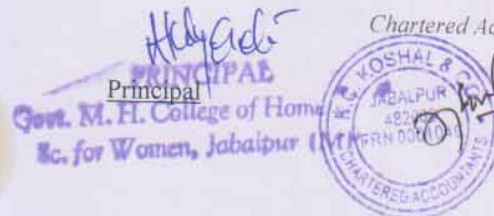 Chartered Ac
PRINCIPAL
Principal
Govt. M. H. College of Home
Sc. for Women, Jabalpur (M
KOSHAL & CO
JABALPUR
482
FRN 00
CHARTERED ACCOUNTANTS